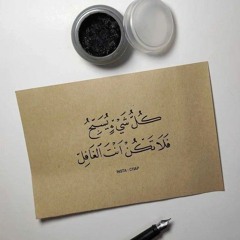 كُلُّ شَيْءٍ يُسَبِّحُ
فَلَا تَكُنْ أَنْتَ الغَافِلَ